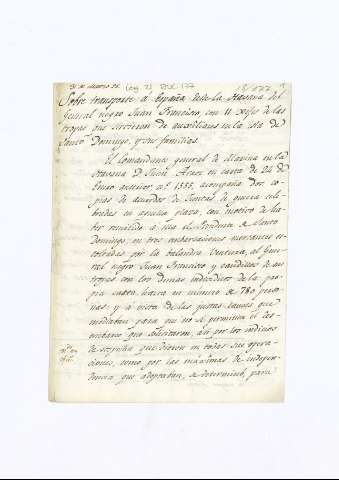 Sobre transporte á España desde la Havana del
General negro Juan Francisco, con 11 Xefes de las
tropas que sirvieron de auxiliares en la isla de
Santo Domingo, y sus familias.
El Comandante general de Marina en la
Havana D. Juan Araoz en carta de 24 de
Enero anterior, n.º 1355, acompaña dos co-
pias de acuerdos de Juntas de guerra cele-
bradas en aquella plaza, con motivo de ha-
ber remitido á ella el Presidente de Santo
Domingo, en tres embarcaciones mercantes es-
coltadas por la balandra Ventura, al Gene-
ral negro Juan Francisco y caudillos de sus
tropas con los demas individuos de la pro-
pia casta, hasta en número de 780 perso-
nas; y á vista de las justas causas que
mediaban para que no se permitiera el des-
embarco que solicitaron, asi por los indicios
de que dieron en todas sus opera-
ciones, como por las máximas de indepen-
dencia que adoptaban, se determinó, para